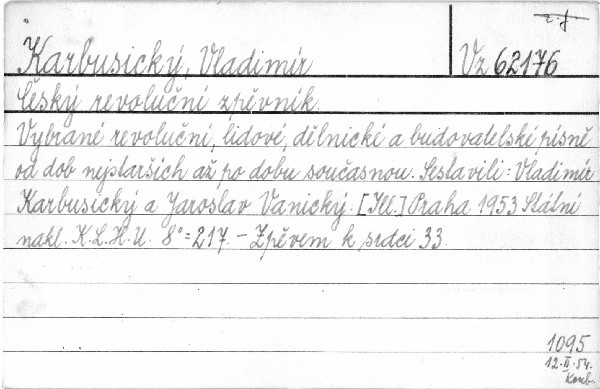 Karbusický, Vladimír
Vz 62176
Český revoluční zpěvník.
Vybrané revoluční, lidové, dělnické a budovatelské písně
od dob nejstarších až po dobu současnou. Sestavili: Vladimír
Karbusický a Jaroslav Vanický. [Ill.] Praha 1953 Státní
nakl. K.L.H.U. 8° = 217. - Zpěvem k srdci 33.
1095
12.II.54.